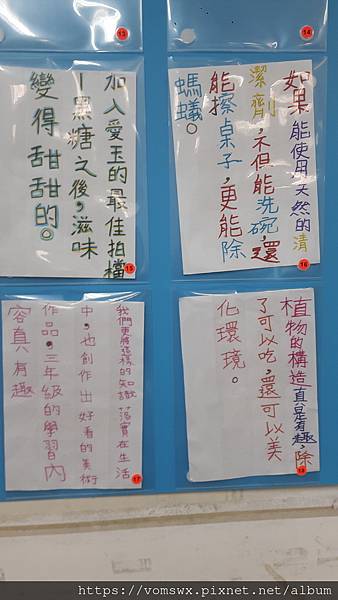 13
14
加入愛玉的最佳拍檔
—黑糖之後,滋味
變得甜甜的。
15
如果能使用天然的清
潔劑,不但能洗碗,還
能擦桌子,更能除
螞蟻。
16
我們更將這樣的知識落實在生活
中,也創作出好看的美術
作品,三年級的學習內
容真有趣
17
植物的構造真是有趣,除
了可以吃,還可以美
化環境。
18
https://vomswx.pixnet.net/album